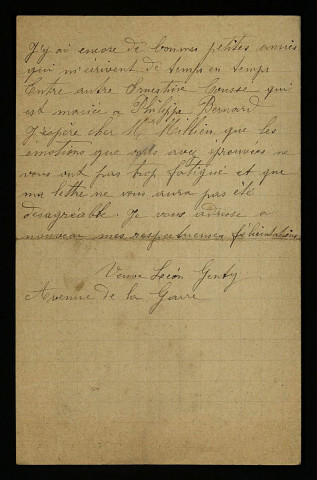 J'y ai encore de bonnes petites amies
qui m'écrivent de temps en temps
Entre autre Ernestine Creusse qui
est mariée a Philippe Bernard
J'espere cher Mr Millien que les
émotions que vous avez éprouvées ne
vous ont pas trop fatigué et que
ma lettre ne vous aura pas été
désagréable. Je vous adresse a
nouveau mes respectueuses félicitations
Veuve Léon Genty
Avenue de la Gare